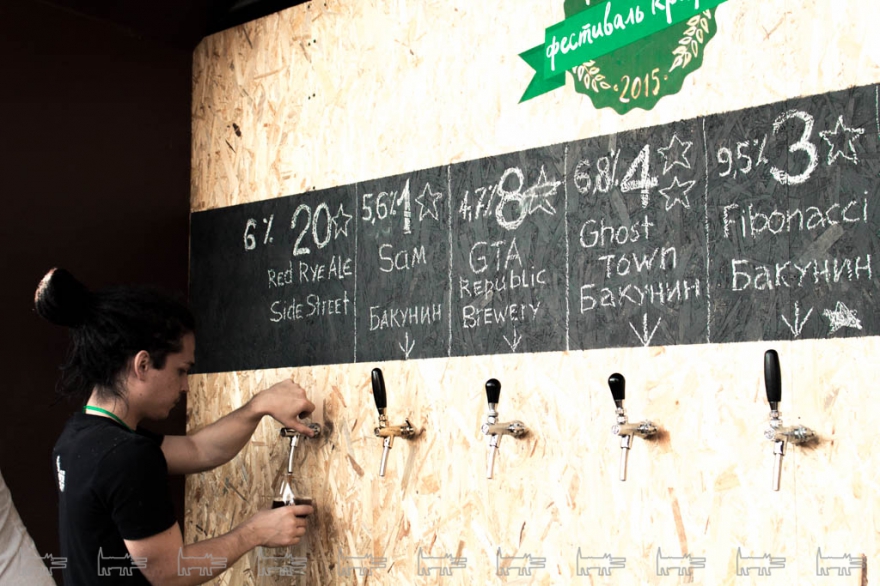 фестиваль
2015
6% 20
Red Rye Ale
Side Street
5,6% 1
Sam
Бакунин
4,7% 8
GTA
Republic
Brewery
6,8% 4
Ghost
Town
Бакунин
9,5% 3
Fibonacci
Бакунин